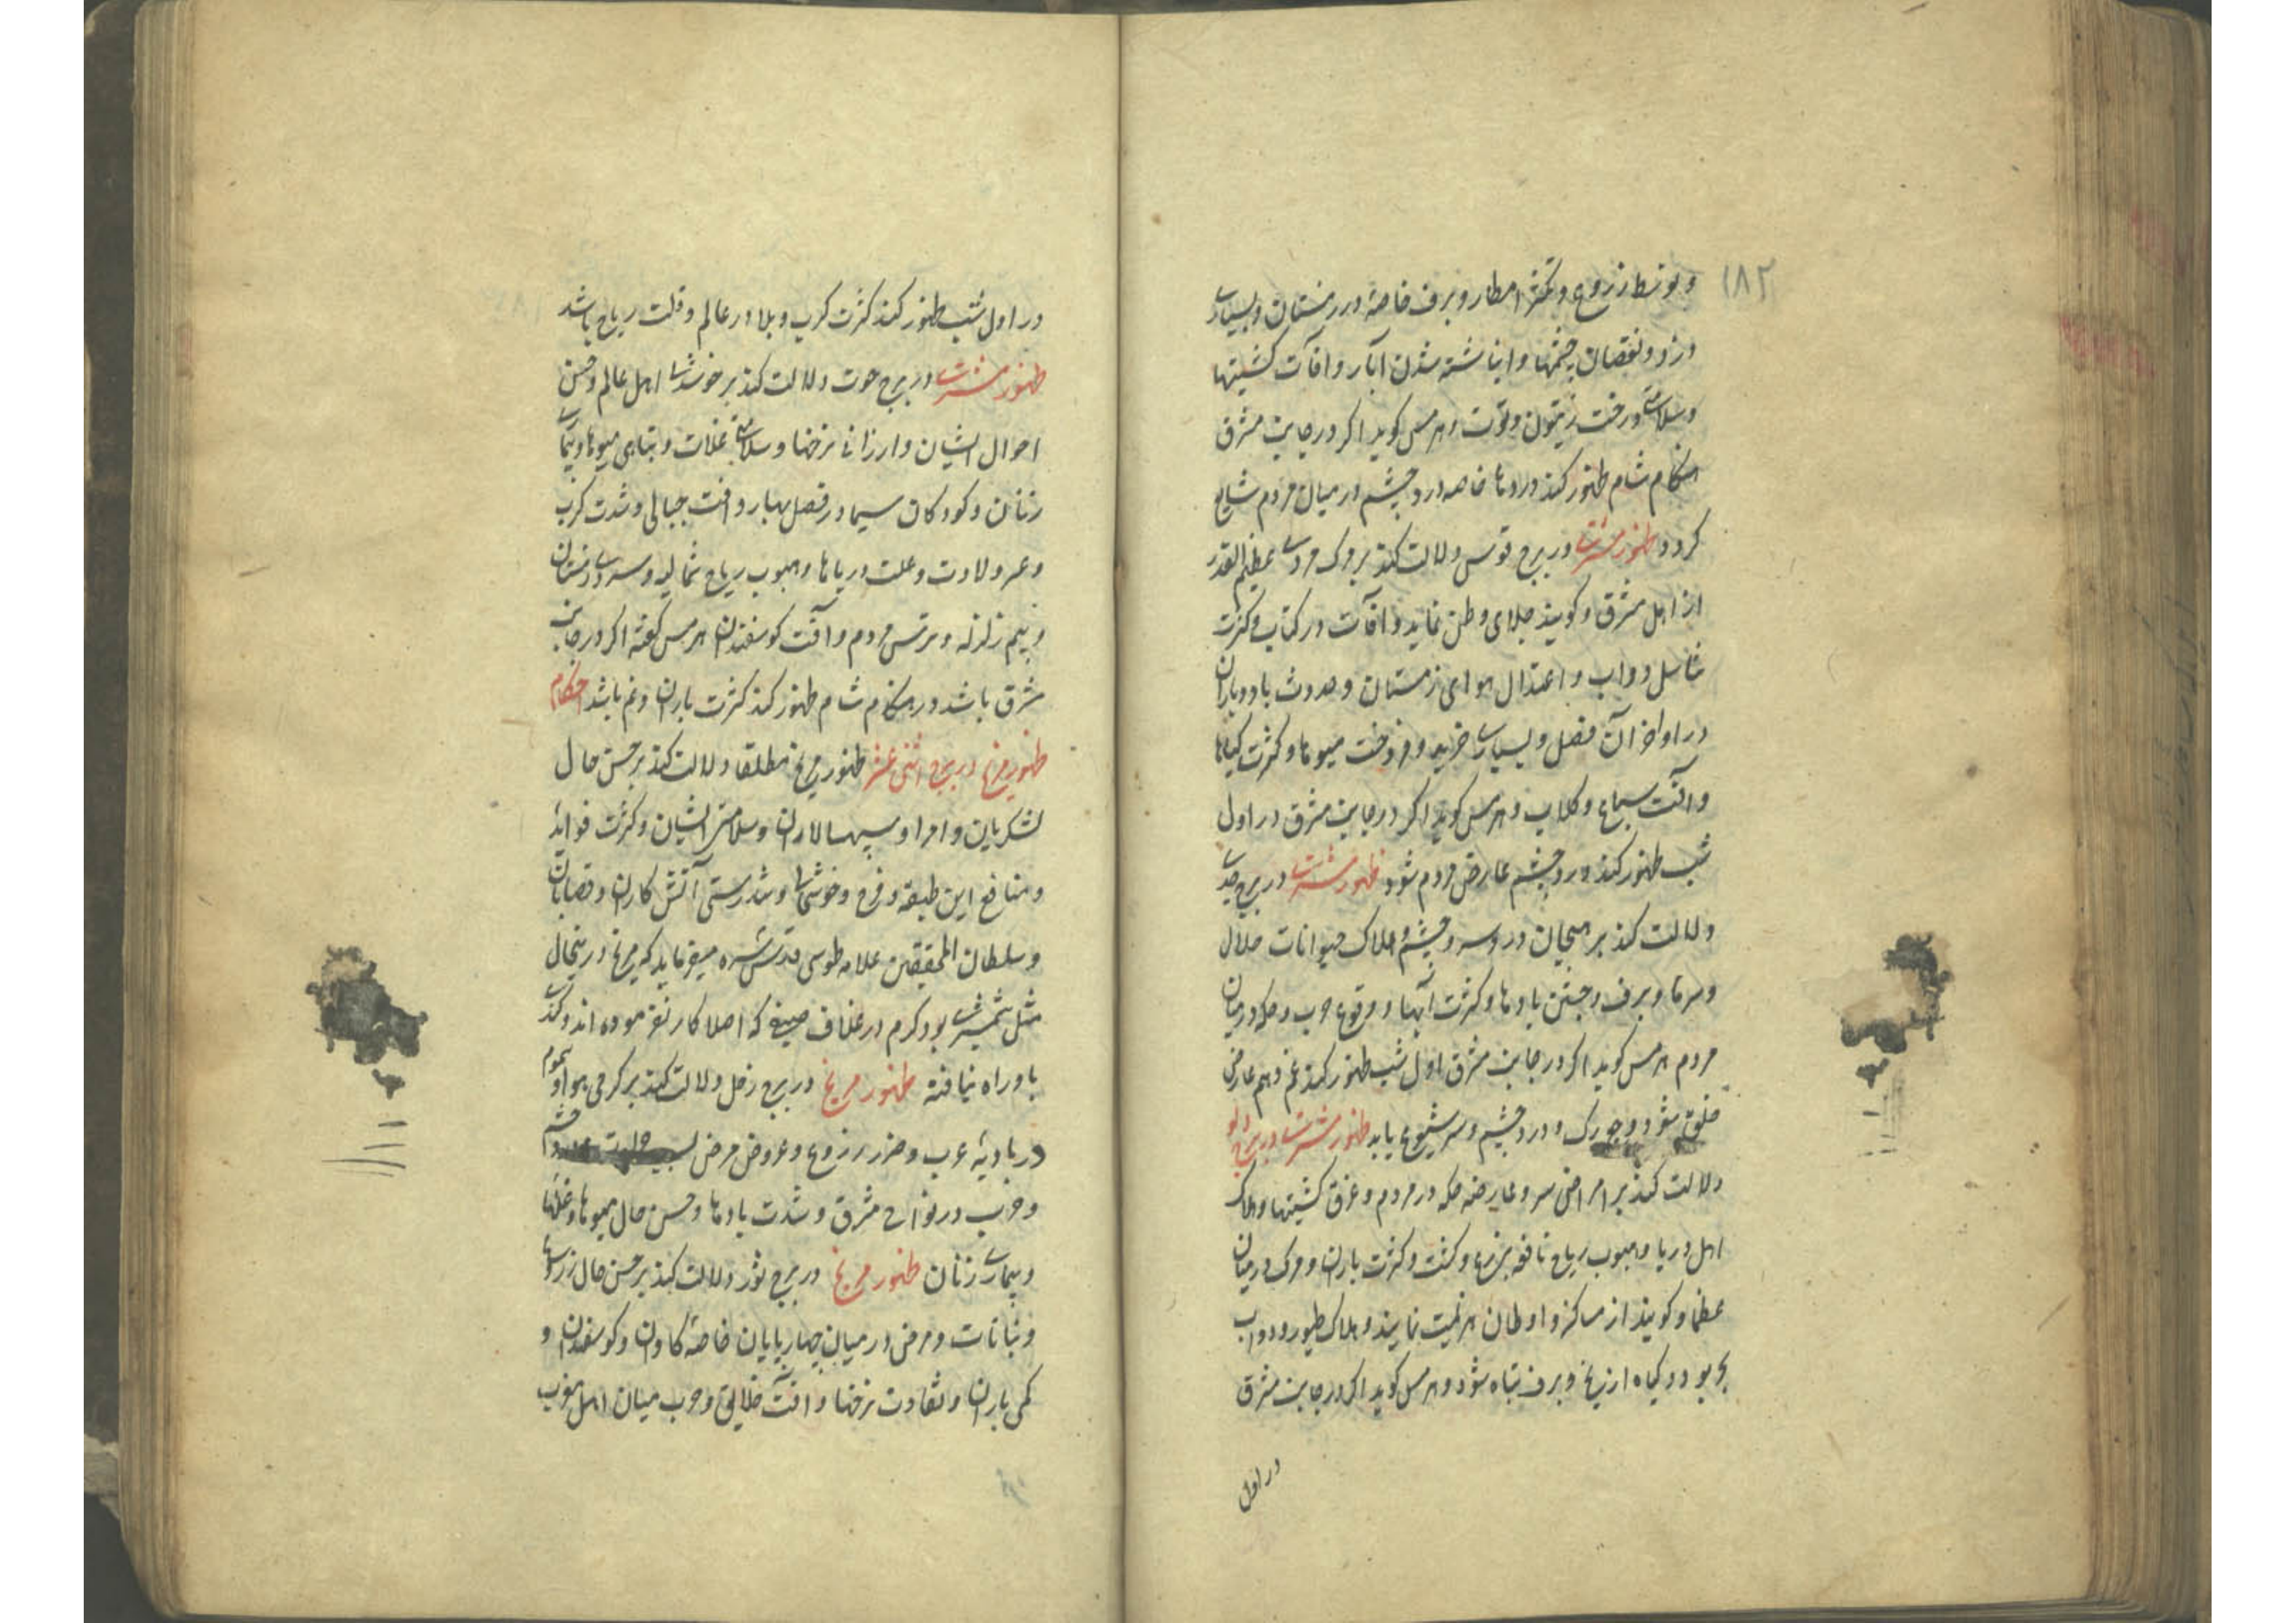 ۱۸۲
و توسط زروع و تکثر امطار و برف خاصه در زمستان و بسیاری
دزد و نقصان چشمها و انباشته شدن آبار و آفات کشتیها
و سلامتی درخت زیتون و توت و هرمس کوید اکر در جانب مشرق
هنکام شام ظهور کند دردها خاصه درد چشم در میان مردم شایع
کردد ظهور مشتری در برج قوس دلالت کند بر مرک مردی عظیم القدر
از اهل مشرق و کویند جلای وطن نماید و آفات در کتاب و کثرت
تناسل دواب و اعتدال هوای زمستان و حدوث باد و باران
در اواخر آن فصل و بسیاری خرید و فروخت میوها و کثرت کیاهها
و آفت سباع و کلاب و هرمس کوید اکر در جانب مشرق در اول
شب ظهور کند درد چشم عارض مردم شود ظهور مشتری در برج جدی
دلالت کند بر هیجان درد سر و چشم و هلاک حیوانات حلال
و سرما و برف و جستن بادها و کثرت آبها و وقوع حرب و حکه در میان
مردم هرمس کوید اکر در جانب مشرق اول شب ظهور کند غم و هم عارض
خلق شود و درد چشم و سر شیوع یابد ظهور مشتری در برج دلو
دلالت کند بر امراض سر و عارضه حکه در مردم و غرق کشتیها و هلاک
اهل دریا و هبوب ریاح نافعه بزرع و کشت و کثرت باران و مرک در میان
عظما و کویند از مساکن و اوطان هزیمت نمایند و هلاک طیور و دواب
بحر بود و کیاه از یخ و برف تباه شود و هرمس کوید اکر در جانب مشرق
در اول
در اول شب ظهور کند کثرت کرب و بلا در عالم و قلت ریاح باشد
ظهور مشتری در برج حوت دلالت کند بر خوشدلی اهل عالم و حسن
احوال ایشان و ارزانی نرخها و سلامتی غلات و تباهی میوها و
زنان و کودکان سیما در فصل بهار و آفت جبالی و شدت کرب
و عسر ولادت و علت دریاها و هبوب ریاح شمالیه و سردی زمستان
و بیم زلزله و ترس مردم و آفت کوسفندان هرمس کفته اکر در جانب
مشرق باشد در هنکام شام ظهور کند کثرت باران و غم باشد احکام
ظهور مریخ در برج اثنی عشر ظهور مریخ مطلقا دلالت کند بر حسن حال
لشکریان و امرا و سپهسالاران و سلامتی ایشان و کثرت فواید
و منافع این طبقه و فرح و خوشحالی و تندرستی آتش کاران و قصابان
و سلطان المحققین علامه طوسی قدس سره میفرماید که مریخ در ینحال
مثل شمشیری بود که هم در غلاف که اصلا کار نفرموده اند و کندی
باو راه نیافته ظهور مریخ در برج حمل دلالت کند بر کرمی هوا و سموم
در بادیه عرب و ضرر زروع و عروض مرض چشم
و حرب در نواحی مشرق و شدت بادها و حسن حال میوها و غلها
و بیماری زنان ظهور مریخ در برج ثور دلالت کند بر حسن حال زرعها
و نباتات و مرض در میان چهارپایان خاصه کاوان و کوسفندان و
کمی باران و تفاوت نرخها و آفت خلایق و حرب میان اهل مغرب